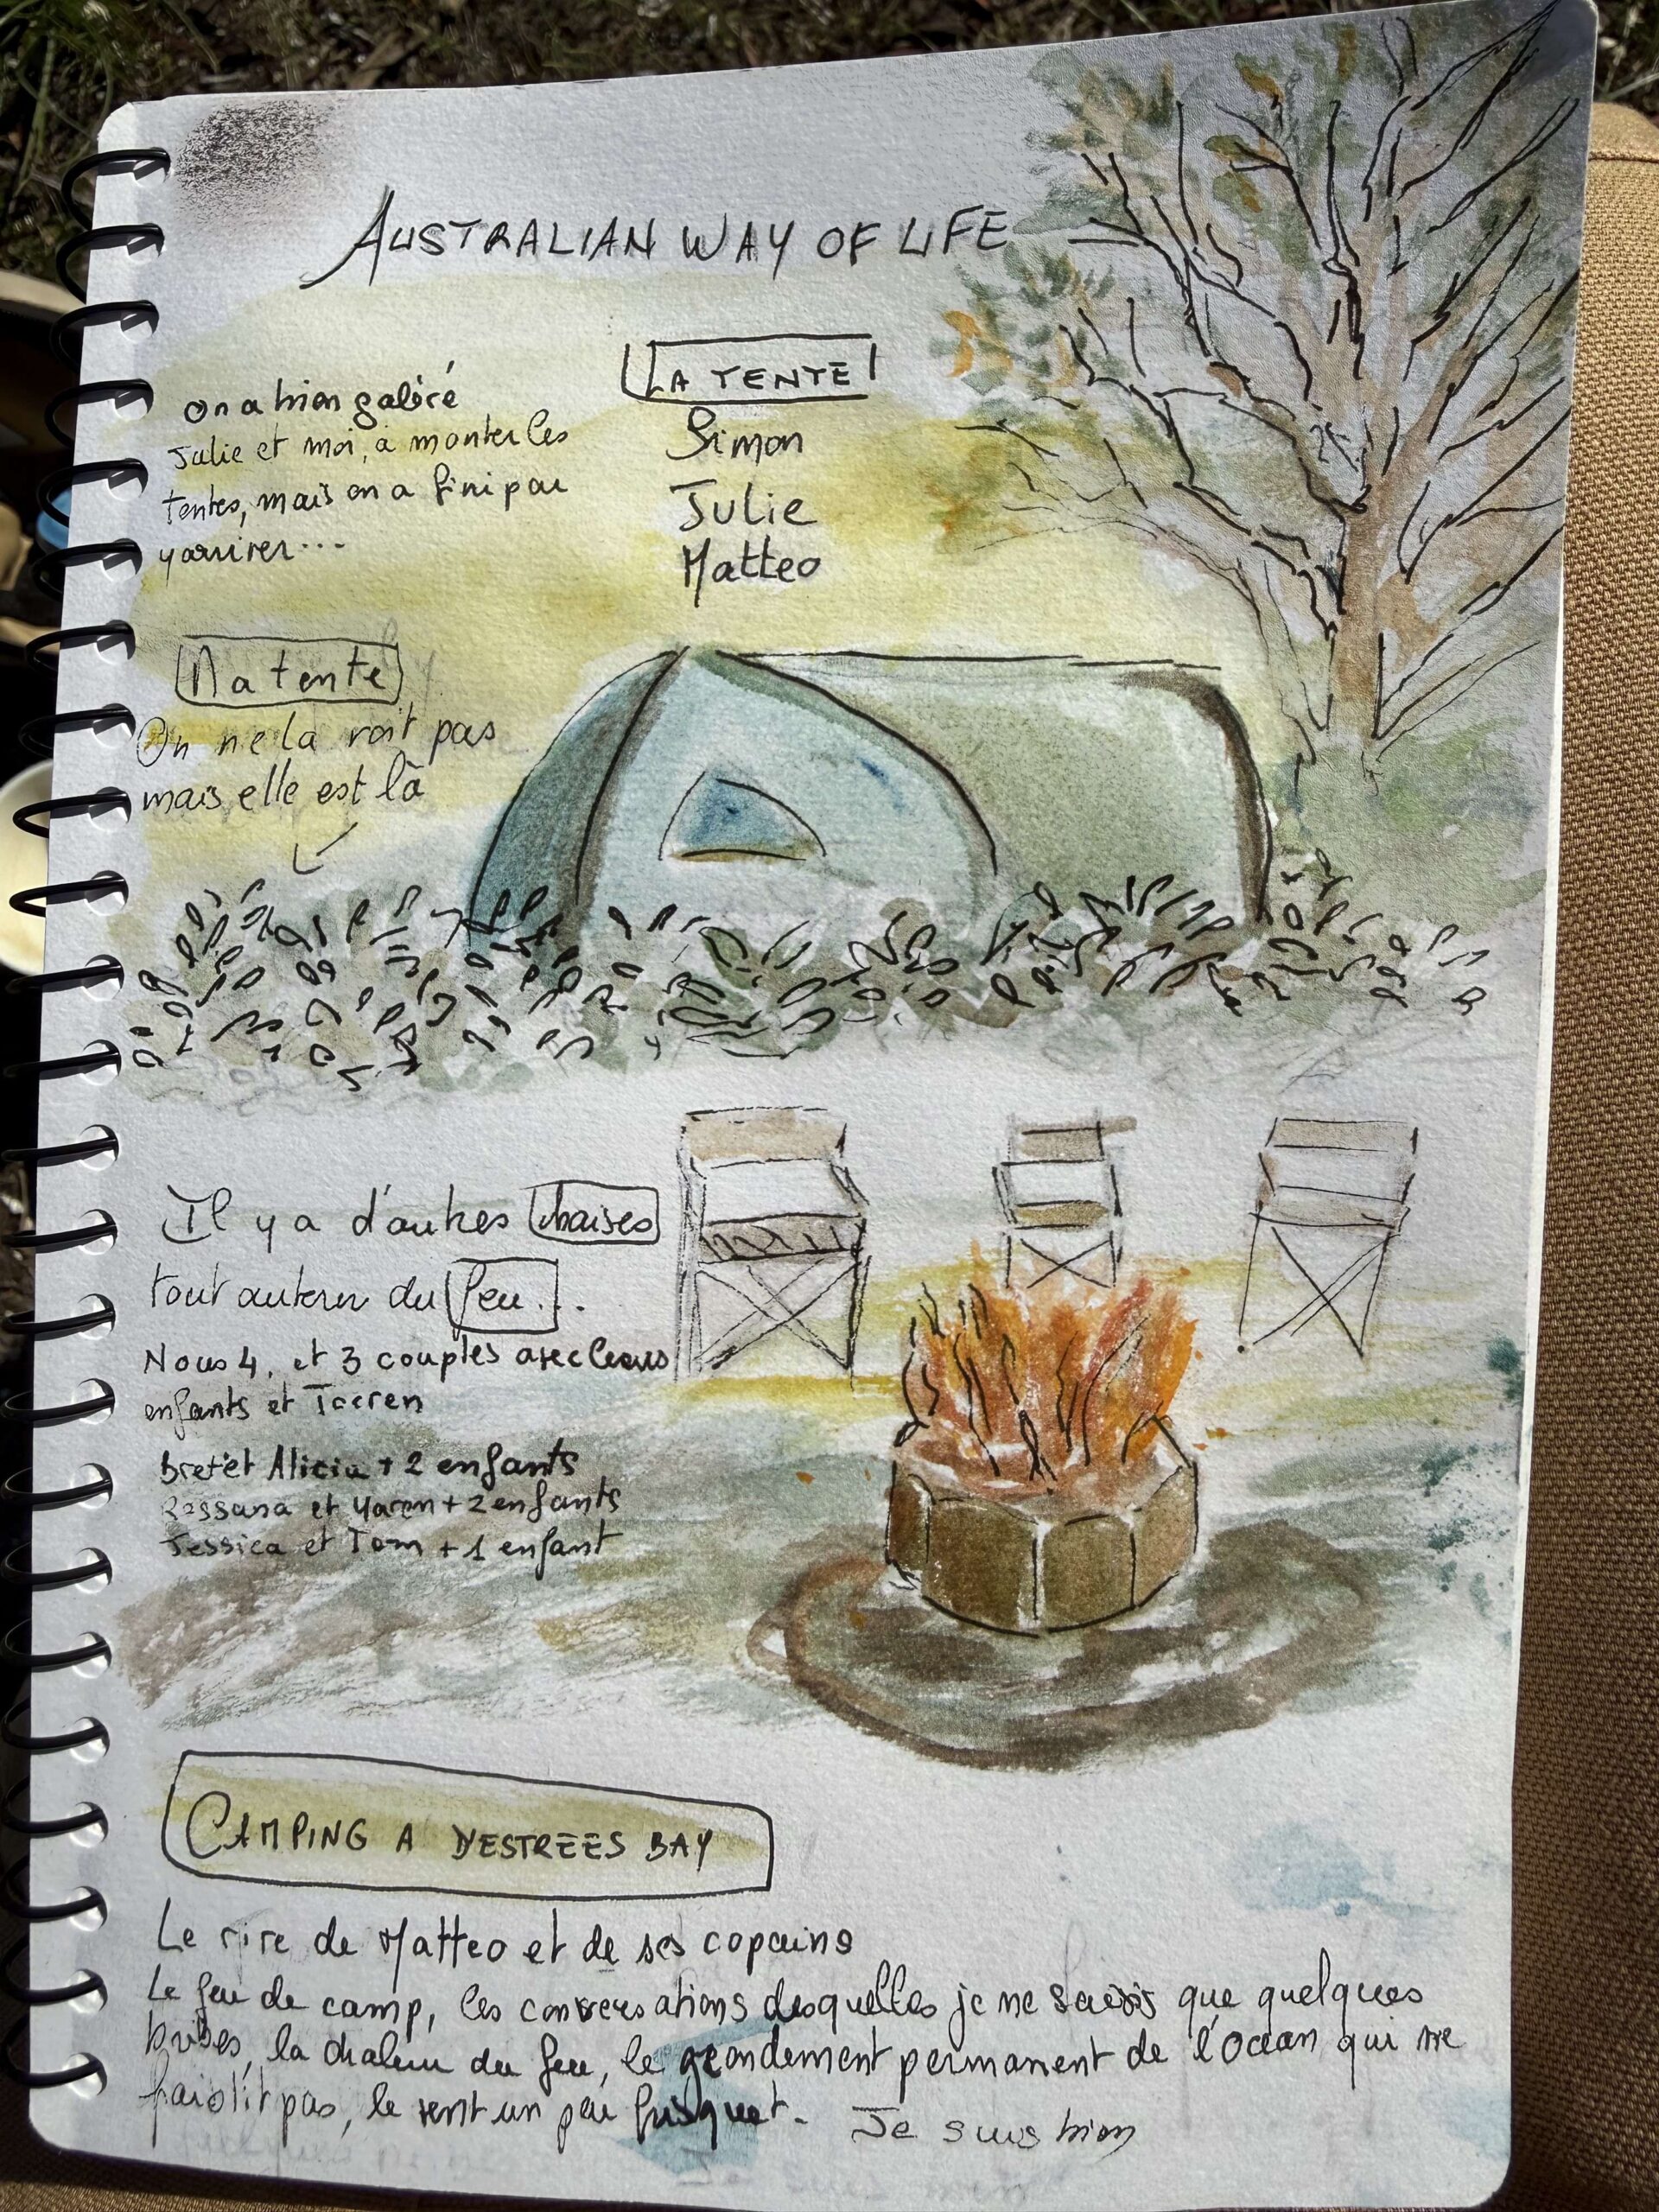 AUSTRALIAN WAY OF LIFE
On a bien galéré
Julie et moi, à monter les
tentes, mais on a fini par
y arriver...
LA TENTE
Simon
Julie
Matteo
Ma tente
On ne la voit pas
mais elle est là
Il y a d'autres chaises
tout autour du feu...
Nous 4, et 3 couples avec leurs
enfants et Torren
Bret et Alicia + 2 enfants
et Yaron + 2 enfants
Jessica et Tom + 1 enfant
CAMPING A D'ESTREES BAY
Le rire de Matteo et de ses copains
Le feu de camp, les conversations desquelles je ne saisis que quelques
bribes, la chaleur du feu, le grondement permanent de l'océan qui ne
faiblit pas, le vent un peu frisquet. Je suis bien